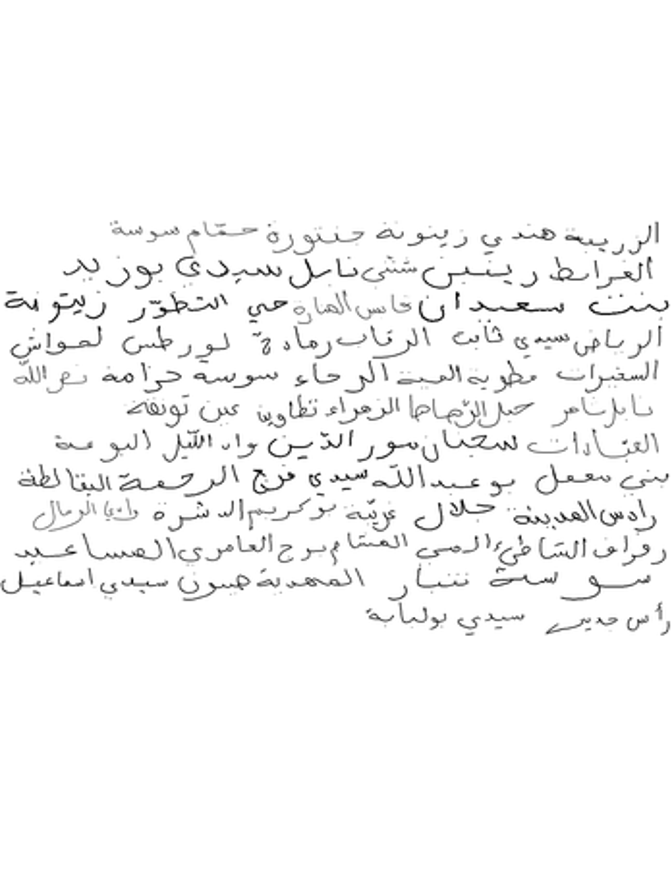 الزريبة هندي زيتونة جنتورة حمّام سوسة
الغرابط رينين شنني نابل سيدي بوزيد
بنت سعيدان فانس المنارة حي التطوّر زيتونة
الرياض سيدي ثابت الرقاب رمادة لورطس لحواش
السغيرات مطوية العينة الرخاء سوسة حزامة نصر الله
نابل نامر جبل الرصاص الزهراء تطاوين عين توتفة
القتادات سجنان سور الدّين واد اللّيل البومة
بني معقل بو عبد الله سيدي فرج الرحمة البقالطة
رادس المدينة جلال غريّة بوكريم الدشرة وادي الرمال
رفراف الشاطئ المسي المنشام برج العامري المساعيد
سوسة سنبار المهدية صيون سيدي اسماعيل
رأس جدير سيدي بولبابة